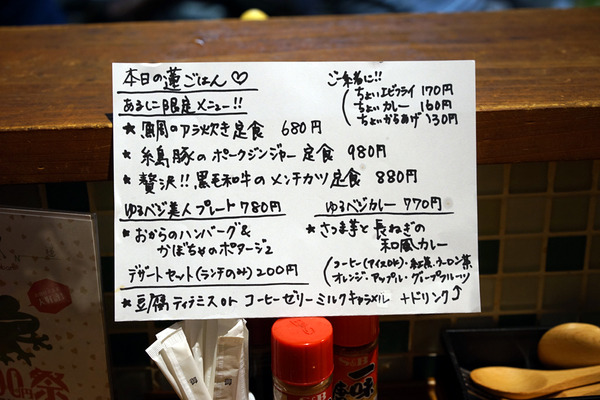 本日の蓮ごはん♡
あるじこ限定メニュー!!
★鯛のアラ炊き定食 680円
★糸島豚のポークジンジャー定食 980円
★贅沢!!黒毛和牛のメンチカツ定食 880円
ご一緒に!!
ちょいエビフライ 170円
ちょいカレー 160円
ちょいからあげ 130円
ゆるベジ美人プレート 780円
★おからのハンバーグ&
かぼちゃのポタージュ
ゆるベジカレー 770円
★さつま芋と長ねぎの
和風カレー
デザートセット(ランチのみ)200円
(コーヒー(アイスOK)・紅茶・ウーロン茶
オレンジ・アップル・グレープフルーツ
★豆腐ティラミス or コーヒーゼリーミルクキャラメル +ドリンク
一味